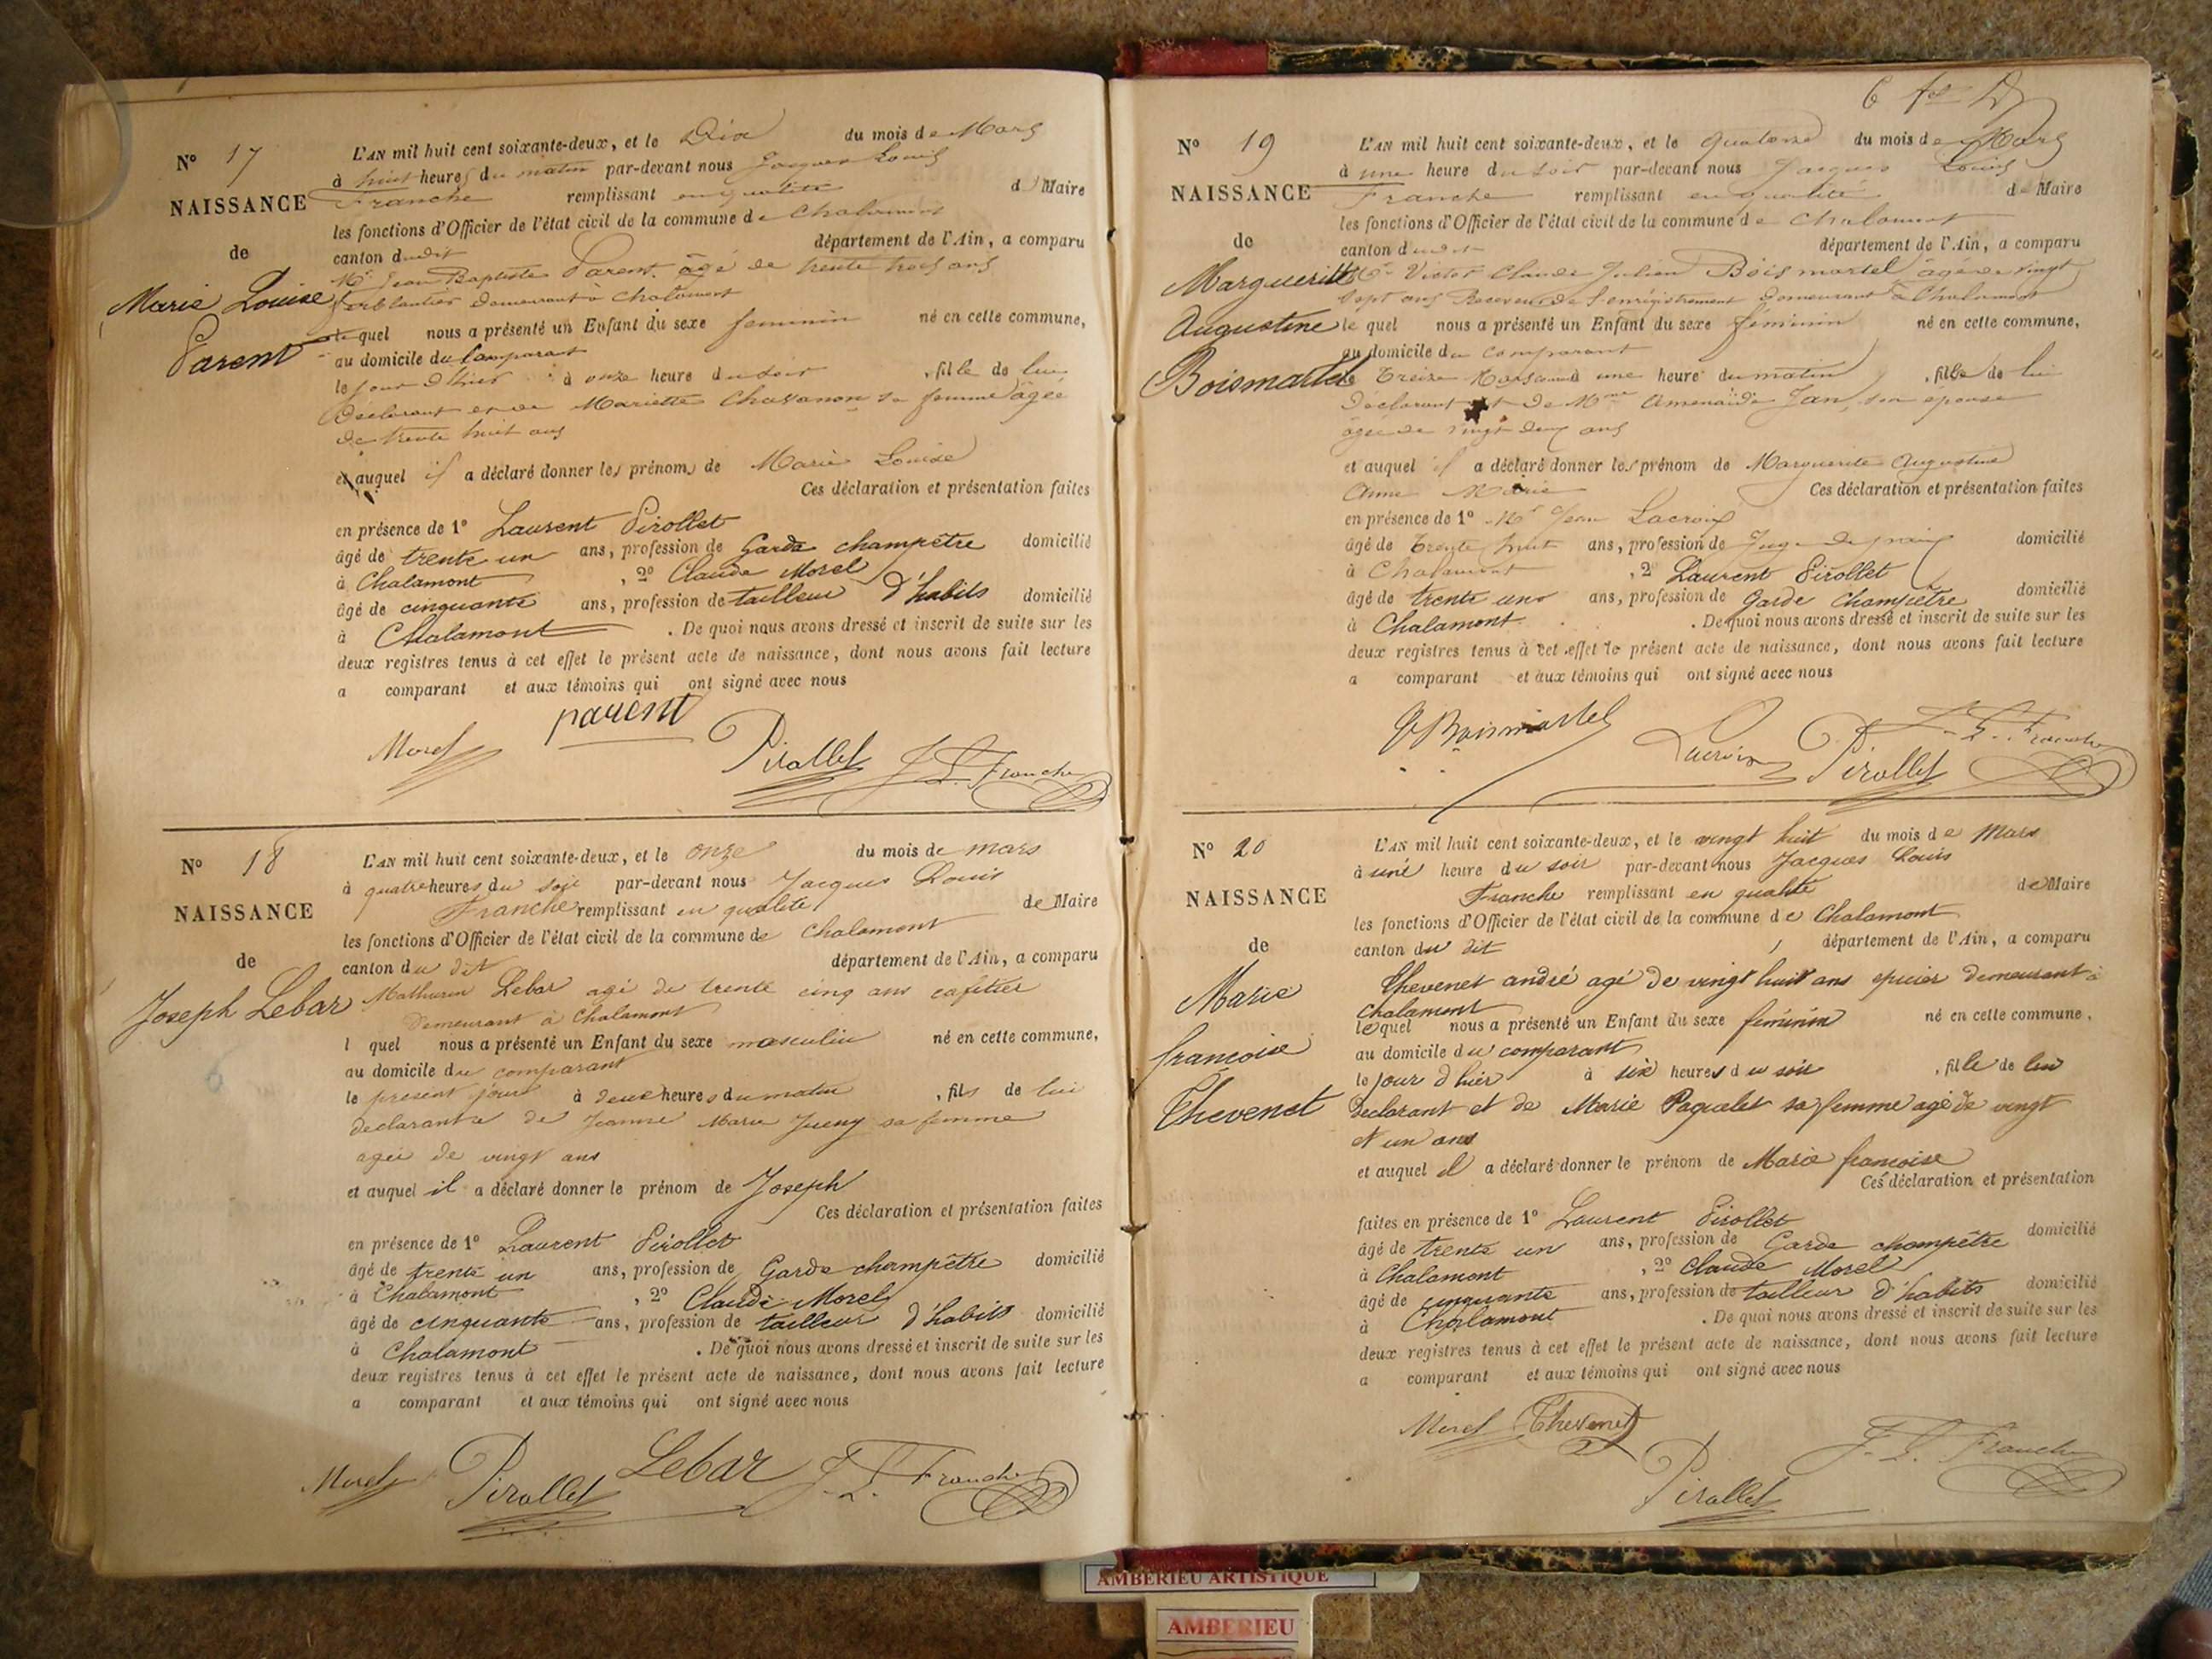 N° 17
NAISSANCE
de
Marie Louise
Parent
L'AN mil huit cent soixante-deux, et le Dix du mois de Mars
à huit heures du matin par-devant nous Jacques Louis
Franche remplissant en qualité de Maire
les fonctions d'Officier de l'état civil de la commune de Chalamont
canton dudit département de l'Ain, a comparu
Mr Jean Baptiste Parent âgé de trente trois ans
ferblantier demeurant à Chalamont
lequel nous a présenté un Enfant du sexe feminin né en cette commune,
au domicile du Comparant
le jour d'hier à onze heure du soir, fille de lui
Declarant et de Mariette Chavanon sa femme âgée
de trente huit ans
et auquel il a déclaré donner les prénoms de Marie Louise
Ces déclaration et présentation faites
en présence de 1° Laurent Pirollet
âgé de trente un ans, profession de Garde champêtre domicilié
à Chalamont, 2° Claude Morel
âgé de cinquante ans, profession de tailleur d'habits domicilié
à Chalamont. De quoi nous avons dressé et inscrit de suite sur les
deux registres tenus à cet effet le présent acte de naissance, dont nous avons fait lecture
a comparant et aux témoins qui ont signé avec nous
parent
Morel Pirollet J. L. Franche
N° 18
NAISSANCE
de
Joseph Lebar
L'AN mil huit cent soixante-deux, et le onze du mois de mars
à quatre heures du soir par-devant nous Jacques Louis
Franche remplissant en qualité de Maire
les fonctions d'Officier de l'état civil de la commune de Chalamont
canton du dit département de l'Ain, a comparu
Mathurin Lebar agé de trente cinq ans cafetier
demeurant à Chalamont
l quel nous a présenté un Enfant du sexe masculin né en cette commune,
au domicile du comparant
le present jour à deux heures du matin, fils de lui
declarant et de Jeanne Marie sa femme
agée de vingt ans
et auquel il a déclaré donner le prénom de Joseph
Ces déclaration et présentation faites
en présence de 1° Laurent Pirollet
âgé de trente un ans, profession de Garde champêtre domicilié
à Chalamont, 2° Claude Morel
âgé de cinquante ans, profession de tailleur d'habits domicilié
à Chalamont. De quoi nous avons dressé et inscrit de suite sur les
deux registres tenus à cet effet le présent acte de naissance, dont nous avons fait lecture
a comparant et aux témoins qui ont signé avec nous
Morel Pirollet Lebar J. L. Franche
6
N° 19
NAISSANCE
de
Marguerite
Augustine
Boismartel
L'AN mil huit cent soixante-deux, et le quatorze du mois de Mars
à une heure du soir par-devant nous Jacques Louis
Franche remplissant en qualité de Maire
les fonctions d'Officier de l'état civil de la commune de Chalamont
canton dudit département de l'Ain, a comparu
Mr Victor Claude Julien Boismartel âgé de vingt
sept ans Receveur de l'enrégistrement demeurant à Chalamont
le quel nous a présenté un Enfant du sexe féminin né en cette commune,
au domicile du comparant
le treize à une heure du matin, fille de lui
Déclarant et de Mme Amenaïde Jan, son epouse
âgée de vingt deux ans
et auquel il a déclaré donner les prénom de Marguerite Augustine
Anne Marie Ces déclaration et présentation faites
en présence de 1° Mr Jean Lacroix
âgé de trente huit ans, profession de Juge de paix domicilié
à Chalamont, 2° Laurent Pirollet
âgé de trente une ans, profession de Garde champêtre domicilié
à Chalamont. De quoi nous avons dressé et inscrit de suite sur les
deux registres tenus à cet effet le présent acte de naissance, dont nous avons fait lecture
a comparant et aux témoins qui ont signé avec nous
Boismartel Lacroix Pirollet J. L. Franche
N° 20
NAISSANCE
de
Marie
françoise
Thevenet
L'AN mil huit cent soixante-deux, et le vingt huit du mois de Mars
à une heure du soir par-devant nous Jacques Louis
Franche remplissant en qualité de Maire
les fonctions d'Officier de l'état civil de la commune de Chalamont
canton du dit, département de l'Ain, a comparu
Thevenet andré agé de vingt huit ans epicier demeurant à
Chalamont
lequel nous a présenté un Enfant du sexe féminin né en cette commune,
au domicile du comparant
le jour d'hier à six heures du soir, fille de lui
Declarant et de Marie Paqualet sa femme agé de vingt
et un ans
et auquel il a déclaré donner le prénom de Marie françoise
Ces déclaration et présentation
faites en présence de 1° Laurent Pirollet
âgé de trente un ans, profession de Garde champêtre domicilié
à Chalamont, 2° Claude Morel
âgé de cinquante ans, profession de tailleur d'habits domicilié
à Chalamont. De quoi nous avons dressé et inscrit de suite sur les
deux registres tenus à cet effet le présent acte de naissance, dont nous avons fait lecture
a comparant et aux témoins qui ont signé avec nous
Morel Thevenet J. L. Franche
Pirollet
AMBERIEU ARTISTIQUE
AMBERIEU